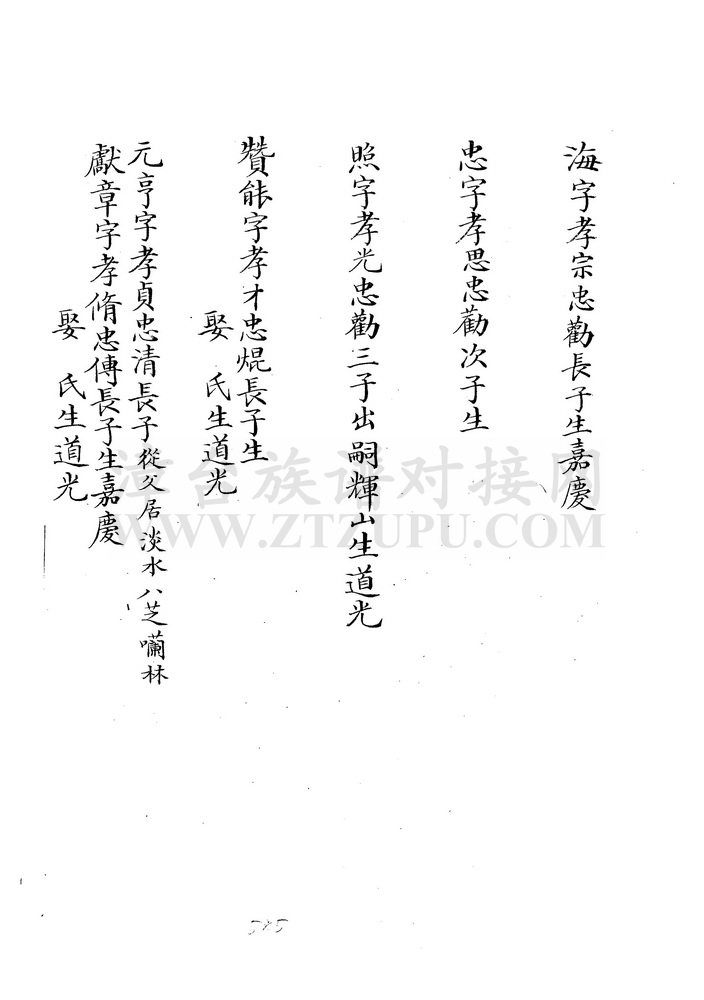 海字孝宗忠勸長子生嘉慶
忠字孝思忠勸次子生
照字孝光忠勸三子出嗣輝山生道光
贊能字孝才忠焜長子生
娶　氏生道光
元亨字孝貞忠清長子從父居淡水八芝嚂林
獻章字孝脩忠傳長子生嘉慶
娶　氏生道光
漳台族谱对接网
WWW.ZTZUPU.COM
585